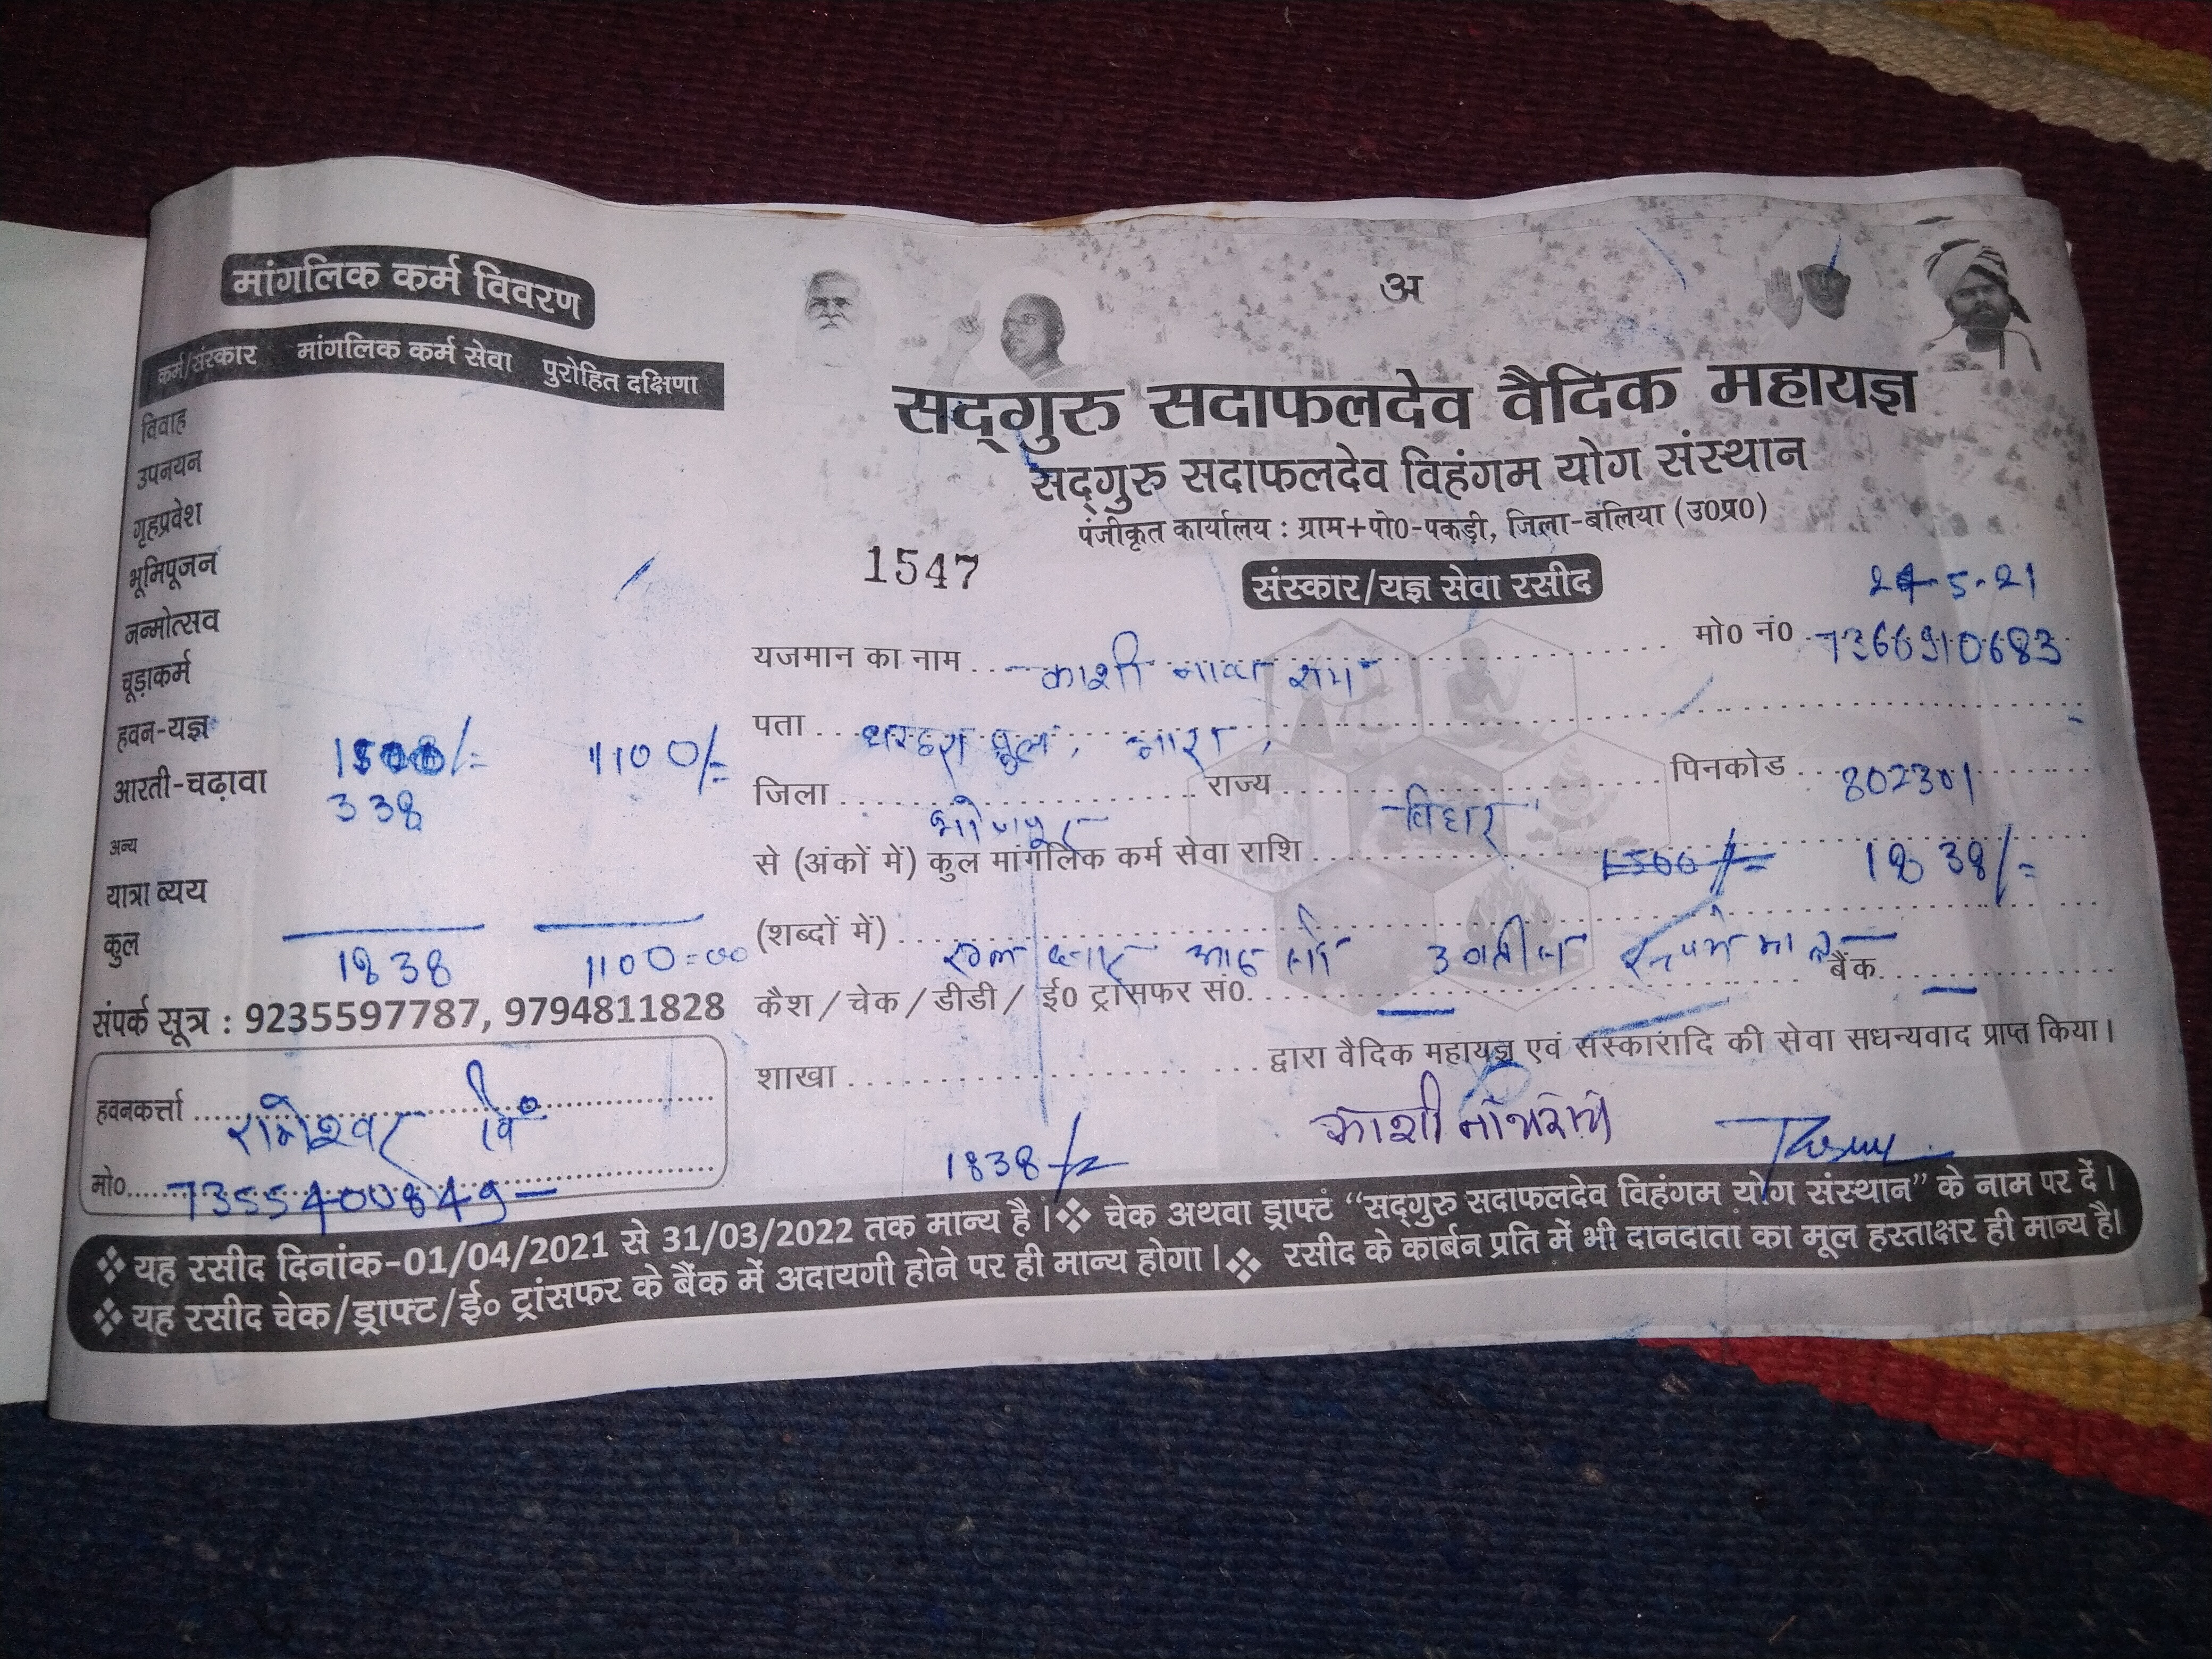 मांगलिक कर्म विवरण
कर्म/संस्कार मांगलिक कर्म सेवा पुरोहित दक्षिणा
विवाह
उपनयन
गृहप्रवेश
भूमिपूजन
जन्मोत्सव
चूड़ाकर्म
हवन-यज्ञ 1500/= 1100/=
आरती-चढ़ावा 338
अन्य
यात्रा व्यय
कुल 1838 1100=00
संपर्क सूत्र : 9235597787, 9794811828
हवनकर्त्ता रामेश्वर
मो० 7355400849
अ
सद्गुरु सदाफलदेव वैदिक महायज्ञ
सद्गुरु सदाफलदेव विहंगम योग संस्थान
पंजीकृत कार्यालय : ग्राम+पो0-पकड़ी, जिला-बलिया (उ0प्र0)
1547 संस्कार/यज्ञ सेवा रसीद
यजमान का नाम काशी नाथ राम मो0 नं0 7366910683
पता धरहरा पुल, आरा,
जिला भोजपुर राज्य बिहार पिनकोड 802301
से (अंकों में) कुल मांगलिक कर्म सेवा राशि 1500/= 1838/=
(शब्दों में) आठ सौ
कैश / चेक / डीडी / ई0 ट्रांसफर सं0. बैंक
शाखा द्वारा वैदिक महायज्ञ एवं संस्कारादि की सेवा सधन्यवाद प्राप्त किया।
1838/= काशी नाथ राम
❖ यह रसीद दिनांक-01/04/2021 से 31/03/2022 तक मान्य है। ❖ चेक अथवा ड्राफ्ट “सद्गुरु सदाफलदेव विहंगम योग संस्थान” के नाम पर दें।
❖ यह रसीद चेक/ड्राफ्ट/ई० ट्रांसफर के बैंक में अदायगी होने पर ही मान्य होगा। ❖ रसीद के कार्बन प्रति में भी दानदाता का मूल हस्ताक्षर ही मान्य है।